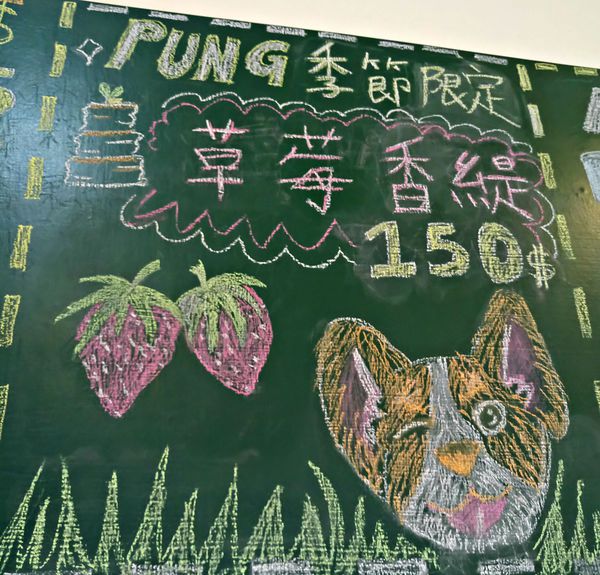 PUNG 季節限定
草莓香緹
150$